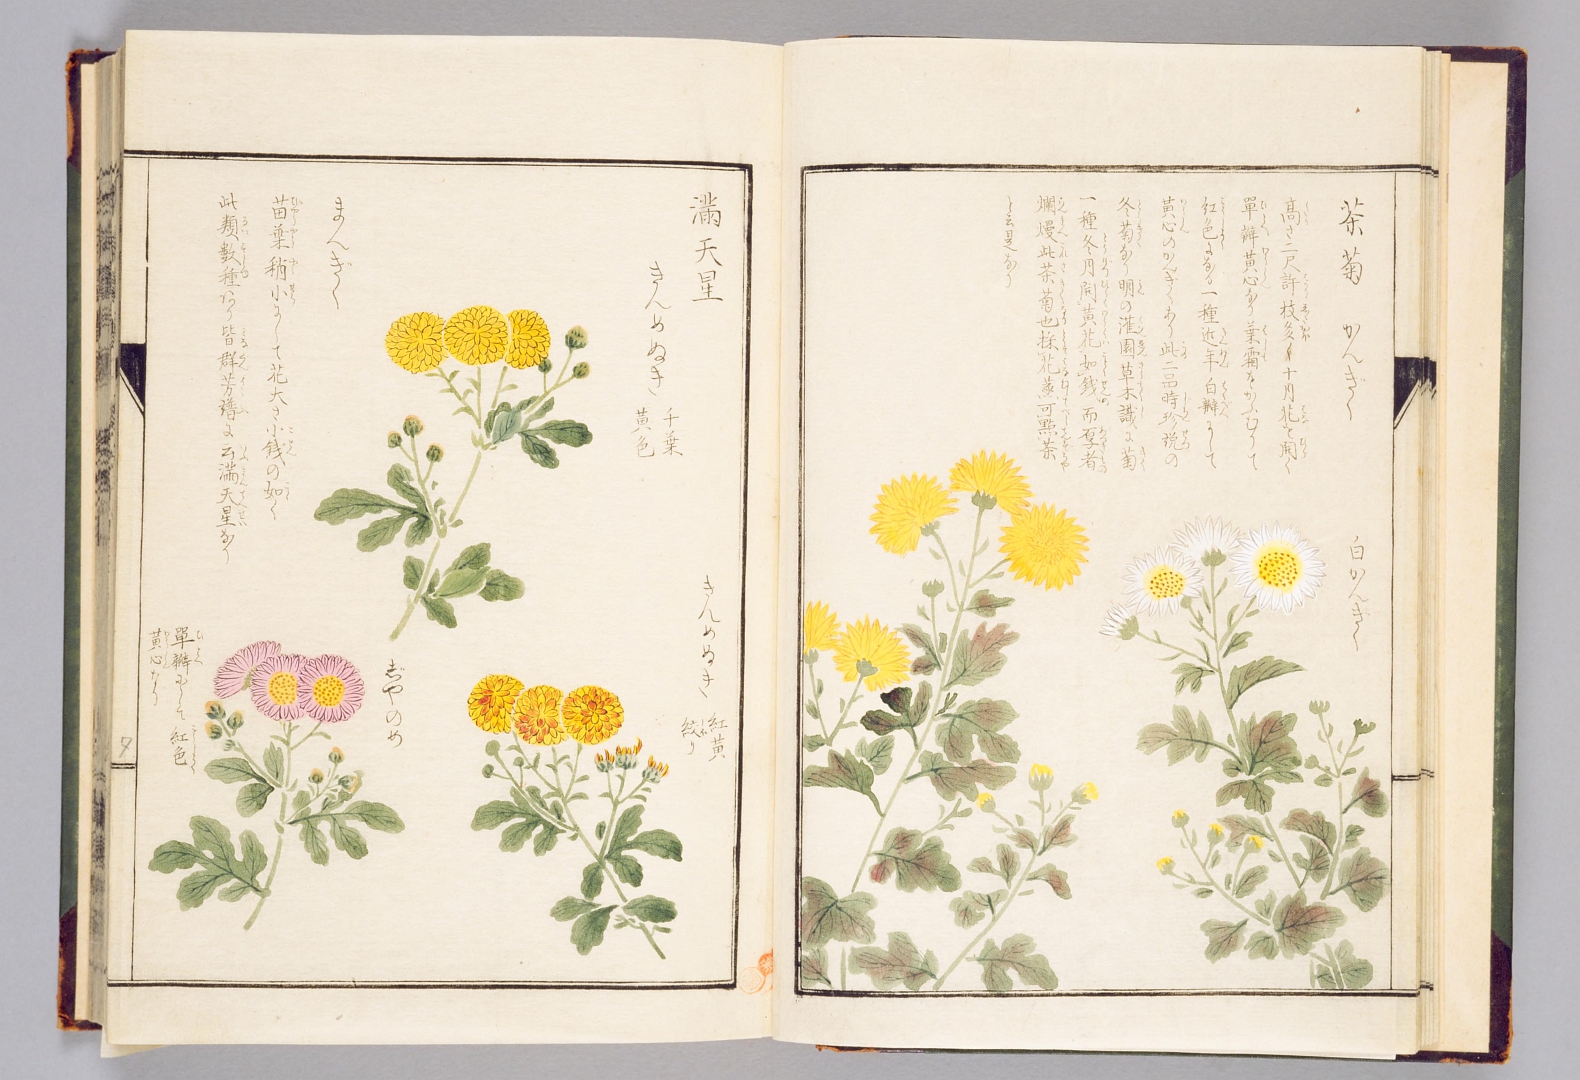 茶菊 かんぎく
高さ二尺許枝多く十月花を開く
單辦黄心なり葉霜をかふむりて
紅色になる一種近年白辦にして
黄心のかんぎくあり此二品時珍説の
冬菊なり明の滙圃草木識に菊
一種冬月開黄花如錢而厚者
爛熳此茶菊也採花蒸可點茶
と云是なり
白かんぎく
滿天星
きんめぬき
千葉
黄色
きんめぬき
紅黄
絞り
まんぎく
苗葉稍小にして花大さ小錢の如く
此類數種あり皆群芳譜に云滿天星なり
志やのめ
單辦にして紅色
黄心なり